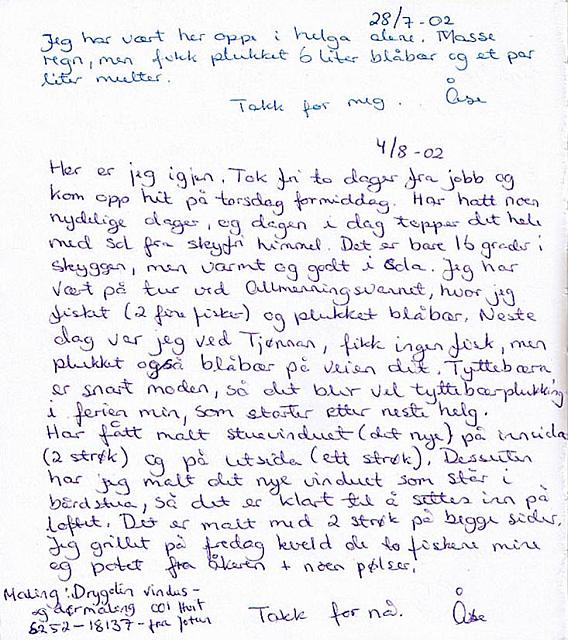 28/7-02
Jeg har vært her oppe i helga alene. Masse
regn, men fikk plukket 6 liter blåbær og et par
liter multer.
Takk for meg. Åse
4/8-02
Her er jeg igjen. Tok fri to dager fra jobb og
kom opp hit på torsdag formiddag. Har hatt noen
nydelige dager, og dagen i dag topper det hele
med sol fra skyfri himmel. Det er bare 16 grader i
skyggen, men varmt og godt i sola. Jeg har
vært på tur ved Allmenningsvannet, hvor jeg
fisket (2 fine fisker) og plukket blåbær. Neste
dag var jeg ved Tjønnan, fikk ingen fisk, men
plukket også blåbær på veien dit. Tyttebæra
er snart moden, så det blir vel tyttebærplukking
i ferien min, som starter etter neste helg.
Har fått malt stuevinduet (det nye) på innsida
(2 strøk) og på utsida (ett strøk). Dessuten
har jeg malt det nye vinduet som står i
bårdstua, så det er klart til å settes inn på
loftet. Det er malt med 2 strøk på begge sider.
Jeg grillet på fredag kveld de to fiskene mine
og potet fra åkeren + noen pølser.
Maling: Drygolin vindus-
og dørmaling 001 Hvit
S252-18137- fra Jotun
Takk for nå. Åse